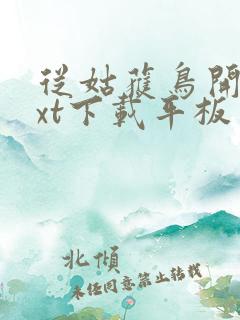 從姑獲鳥開
xt下載平板
北傾
未任同意禁止轉載